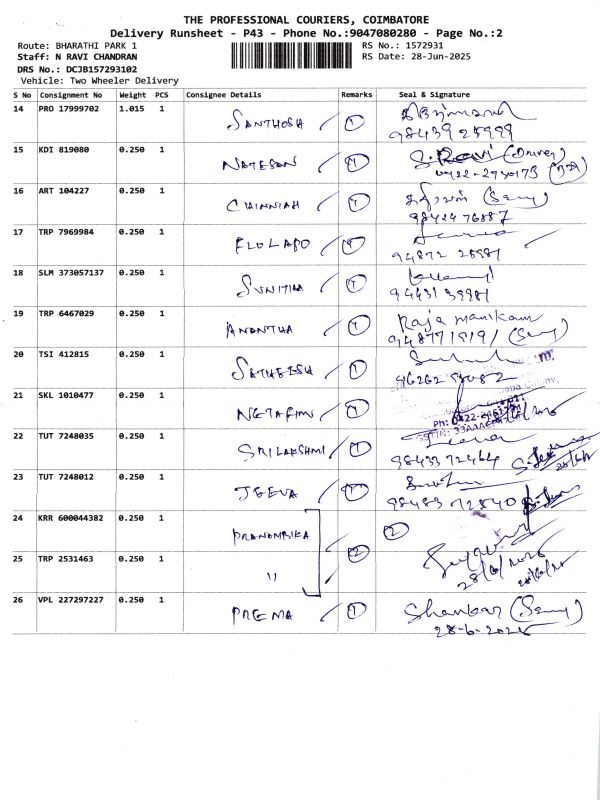 THE PROFESSIONAL COURIERS, COIMBATORE
Delivery Runsheet - P43 - Phone No.:9047080280 - Page No.:2
Route: BHARATHI PARK 1
RS No.: 1572931
Staff: N RAVI CHANDRAN
RS Date: 28-Jun-2025
DRS No.: DCJB157293102
Vehicle: Two Wheeler Delivery
S No Consignment No Weight PCS Consignee Details Remarks Seal & Signature
14 PRO 17999702 1.015 1 SANTHOSH 1
98439 25999
15 KDI 819080 0.250 1 NATESON 1 S. Ravi (Driver)
16 ART 104227 0.250 1 CHINNIAH 1
98424 76887
17 TRP 7969984 0.250 1 1
94872 28981
18 SLM 373057137 0.250 1 SUNITHA 1
94431 39981
19 TRP 6467029 0.250 1 ANANTHA 1 Raja manikam
20 TSI 412815 0.250 1 SATHEESH 1
21 SKL 1010477 0.250 1 NETAFIM 1
22 TUT 7248035 0.250 1 SRILAKSHMI 1
98433 72464
23 TUT 7248012 0.250 1 JEEVA 1
98483 72840
24 KRR 600044382 0.250 1 PRANAMBIKA 2
2
25 TRP 2531463 0.250 1 "
28/6/2025
26 VPL 227297227 0.250 1 PREMA 1 Shankar
28-6-2025